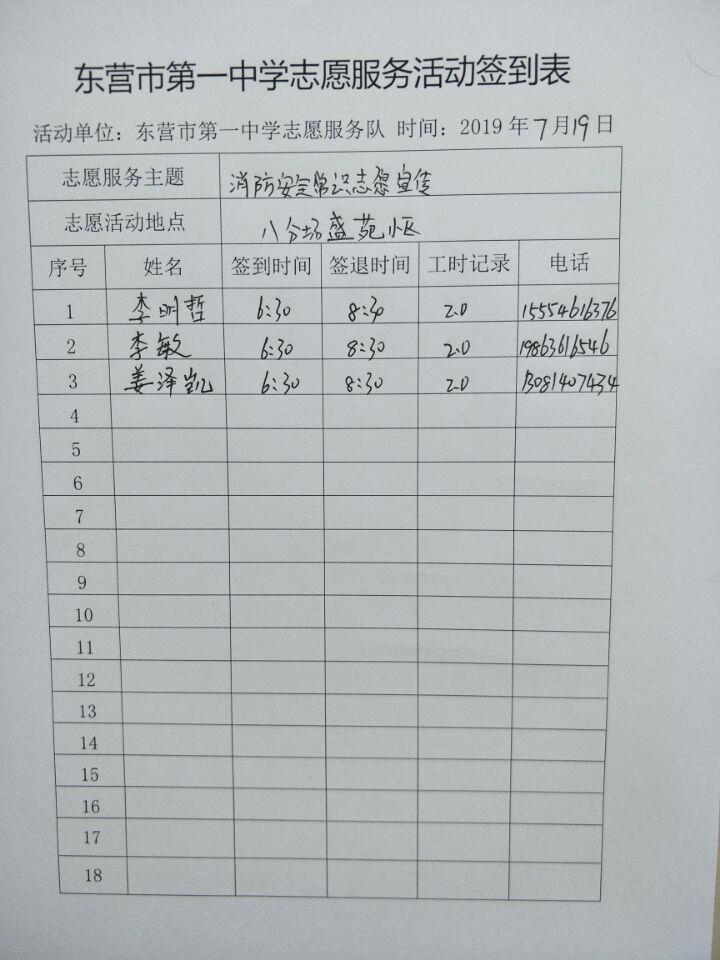 东营市第一中学志愿服务活动签到表
活动单位：东营市第一中学志愿服务队 时间：2019年7月19日
志愿服务主题 消防安全常识志愿宣传
志愿活动地点 八分场盛苑小区
序号 姓名 签到时间 签退时间 工时记录 电话
1 李明哲 6:30 8:30 2.0 15554616376
2 李敏 6:30 8:30 2.0 19863616546
3 姜泽凯 6:30 8:30 2.0 13081407434
4
5
6
7
8
9
10
11
12
13
14
15
16
17
18